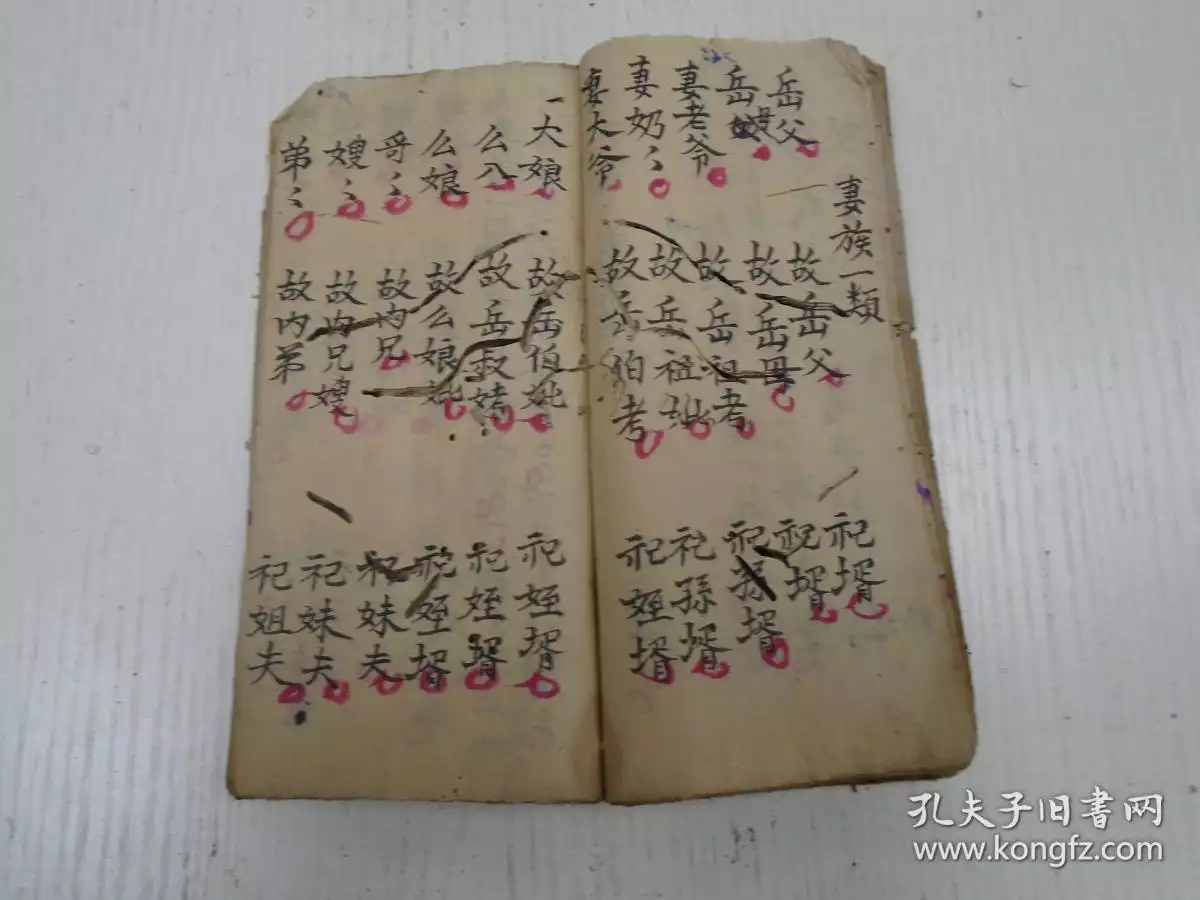 妻族一類
岳父 故岳父 祀壻
岳 故岳母 祀壻
妻老爷 故岳祖考 祀孫壻
妻奶〻 故岳祖妣 祀孫壻
妻大爷 故岳伯考 祀姪壻
一大娘 故岳伯妣 祀姪壻
么八 故岳叔 祀姪壻
么娘 故么娘妣 祀姪壻
哥〻 故内兄 祀妹夫
嫂〻 故内兄嫂 祀妹夫
弟〻 故内弟 祀姐夫
孔夫子旧书网
www.kongfz.com